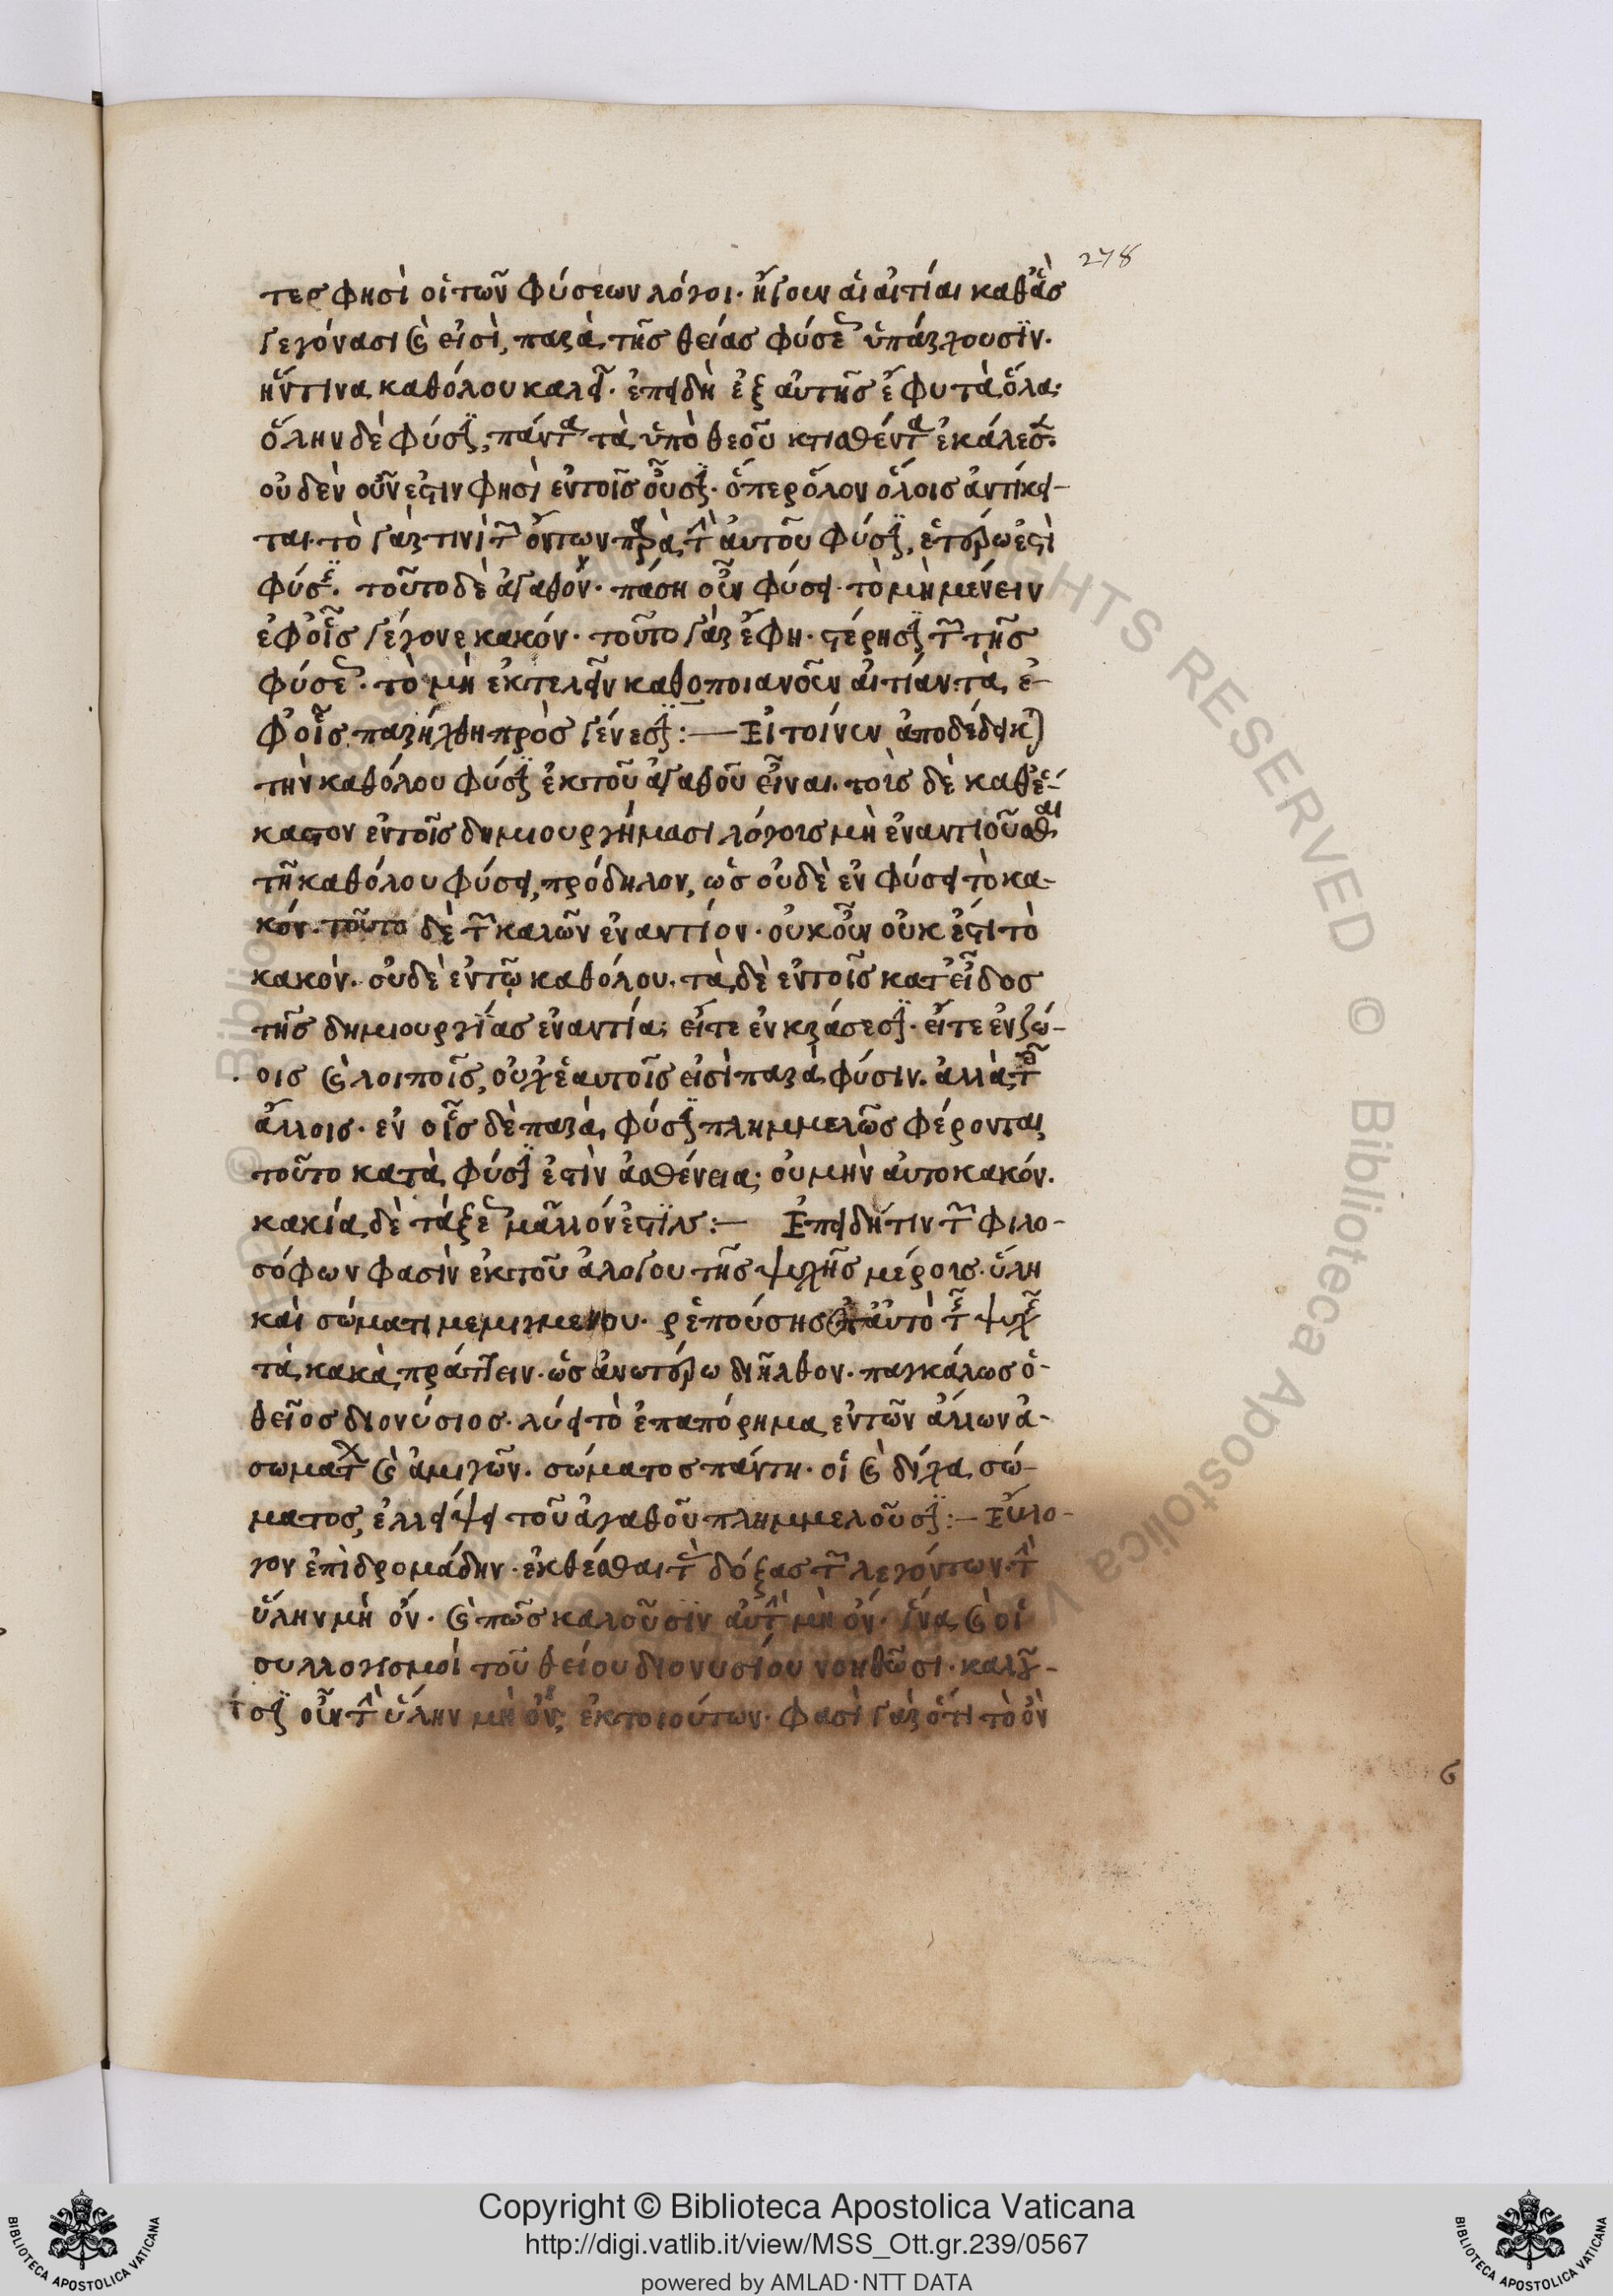 278
τερ φησὶ οἱ τῶν φύσεων λόγοι· ἤγουν αἱ αἰτίαι καθ᾽ ἃσ
γεγόνασι καὶ εἰσὶ, παρὰ τῆσ θείας φύσεως ὑπάρχουσϊν·
ἥντινα καθόλου καλεῖ· ἐπειδὴ ἐξ αὐτῆσ ἔφυ τὰ ὅλα·
ὅλην δὲ φύσϊν, πάντα τὰ ὑπὸ θεοῦ κτισθέντα ἐκάλεσεν·
οὐδὲν οὖν ἐστιν φησὶ ἐν τοῖσ οὖσϊν· ὅπερ ὅλον ὅλοισ ἀντίκει-
ται· τὸ γάρ τινὶ τῶν ὄντων παρὰ τὴν αὐτοῦ φύσϊν, ἑτέρω ἐστὶ
φύσϊσ· τοῦτο δὲ ἀγαθόν· πάση οὖν φύσει· τὸ μὴ μένειν
ἐφ᾽ οἷσ γέγονε κακόν· τοῦτο γὰρ ἔφη· στέρησϊν τῶν τῆσ
φύσεως· τὸ μὴ ἐκτελεῖν καθ᾽ οποιανοῦν αἰτίαν· τὰ ἐ-
φ᾽ οἷσ παρήχθη πρὸσ γένεσϊν:— Εἰ τοίνυν ἀποδέδεικται
τὴν καθόλου φύσϊν ἐκ τοῦ ἀγαθοῦ εἶναι· τοὶσ δὲ καθ᾽ ἕ-
καστον ἐν τοῖσ δημιουργήμασι λόγοισ μὴ ἐναντιοῦσθαι
τῆ καθόλου φύσει, πρόδηλον, ὡσ οὐδὲ ἐν φύσει τὸ κα-
κόν· τοῦτο δὲ τῶν καλῶν ἐναντίον· οὐκοῦν οὐκ ἔστι τὸ
κακὸν· οὐδὲ ἐν τῶ καθόλου· τὰ δὲ ἐν τοῖσ κατ᾽ εἶδοσ
τῆσ δημιουργΐασ ἐναντία· εἴτε ἐν κράσεσϊν· εἴτε ἐν ζώ-
οισ καὶ λοιποῖσ, οὐχ ἑαυτοῖσ εἰσὶ παρὰ φύσιν· ἀλλὰ τοῖσ
ἄλλοισ· ἐν οἷσ δὲ παρὰ φύσϊν πλημμελῶσ φέρονται,
τοῦτο κατὰ φύσϊν ἐστὶν ἀσθένεια· οὐ μὴν αὐτοκακόν·
κακία δὲ τάξεωσ μᾶλλόν ἐστϊν:— Ἐπειδή τιν τῶν φιλο-
σόφων φασὶν ἐκ τοῦ ἀλόγου τῆσ ψυχῆσ μέροισ· ὕλη
καὶ σώματι μεμιγμένου· ῥεπούσησ ἐπ᾽ αὐτὸ τῆσ ψυχῆσ
τὰ κακὰ πράττειν· ὡσ ἀνωτέρω διῆλθον· παγκάλωσ ὁ
θεῖοσ διονύσιοσ· λύει τὸ ἐπαπόρημα ἐν τῶν ἄλλων ἀ-
σωμάτων καὶ ἀμιγῶν· σώματοσ πάντη· οἳ καὶ δίχα σώ-
ματοσ, ἐλλείψει τοῦ ἀγαθοῦ πλημμελοῦσϊν:— Εὔλο-
γον ἐπὶδρομάδην· ἐκθέσθαι τὰσ δόξασ τῶν λεγόντων· τὴν
ὕλην μὴ ὄν· καὶ πῶσ καλοῦσϊν αὐτὴν μὴ ὄν· ἵνα καὶ οἱ
συλλογισμοὶ τοῦ θείου διονυσίου νοηθῶσι· καλοῦ-
σϊν οὖν τὴν ὕλην μὴ ὄν, ἐκ τοιούτων· φασὶ γὰρ ὅτι τὸ ὂν
Copyright © Biblioteca Apostolica Vaticana
http://digi.vatlib.it/view/MSS_Ott.gr.239/0567
powered by AMLAD·NTT DATA